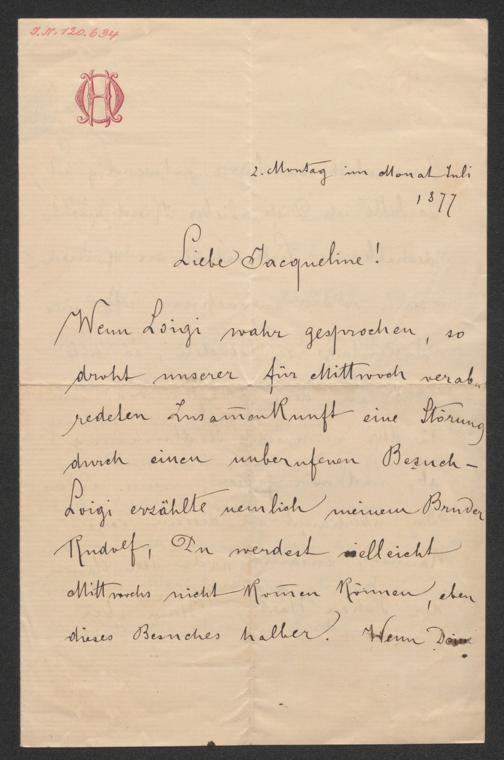 I.N. 120.634
2. Montag im Monat Juli
1877
Liebe Jacqueline!
Wenn Loigi wahr gesprochen, so
droht unserer für Mittwoch verab-
redeten Zusam̅enkunft eine Störung
durch einen unberufenen Besuch –
Loigi erzählte nemlich meinem Bruder
Rudolf, Du werdest vielleicht
Mittwochs nicht kom̅en können, eben
dieses Besuches halber. Wenn